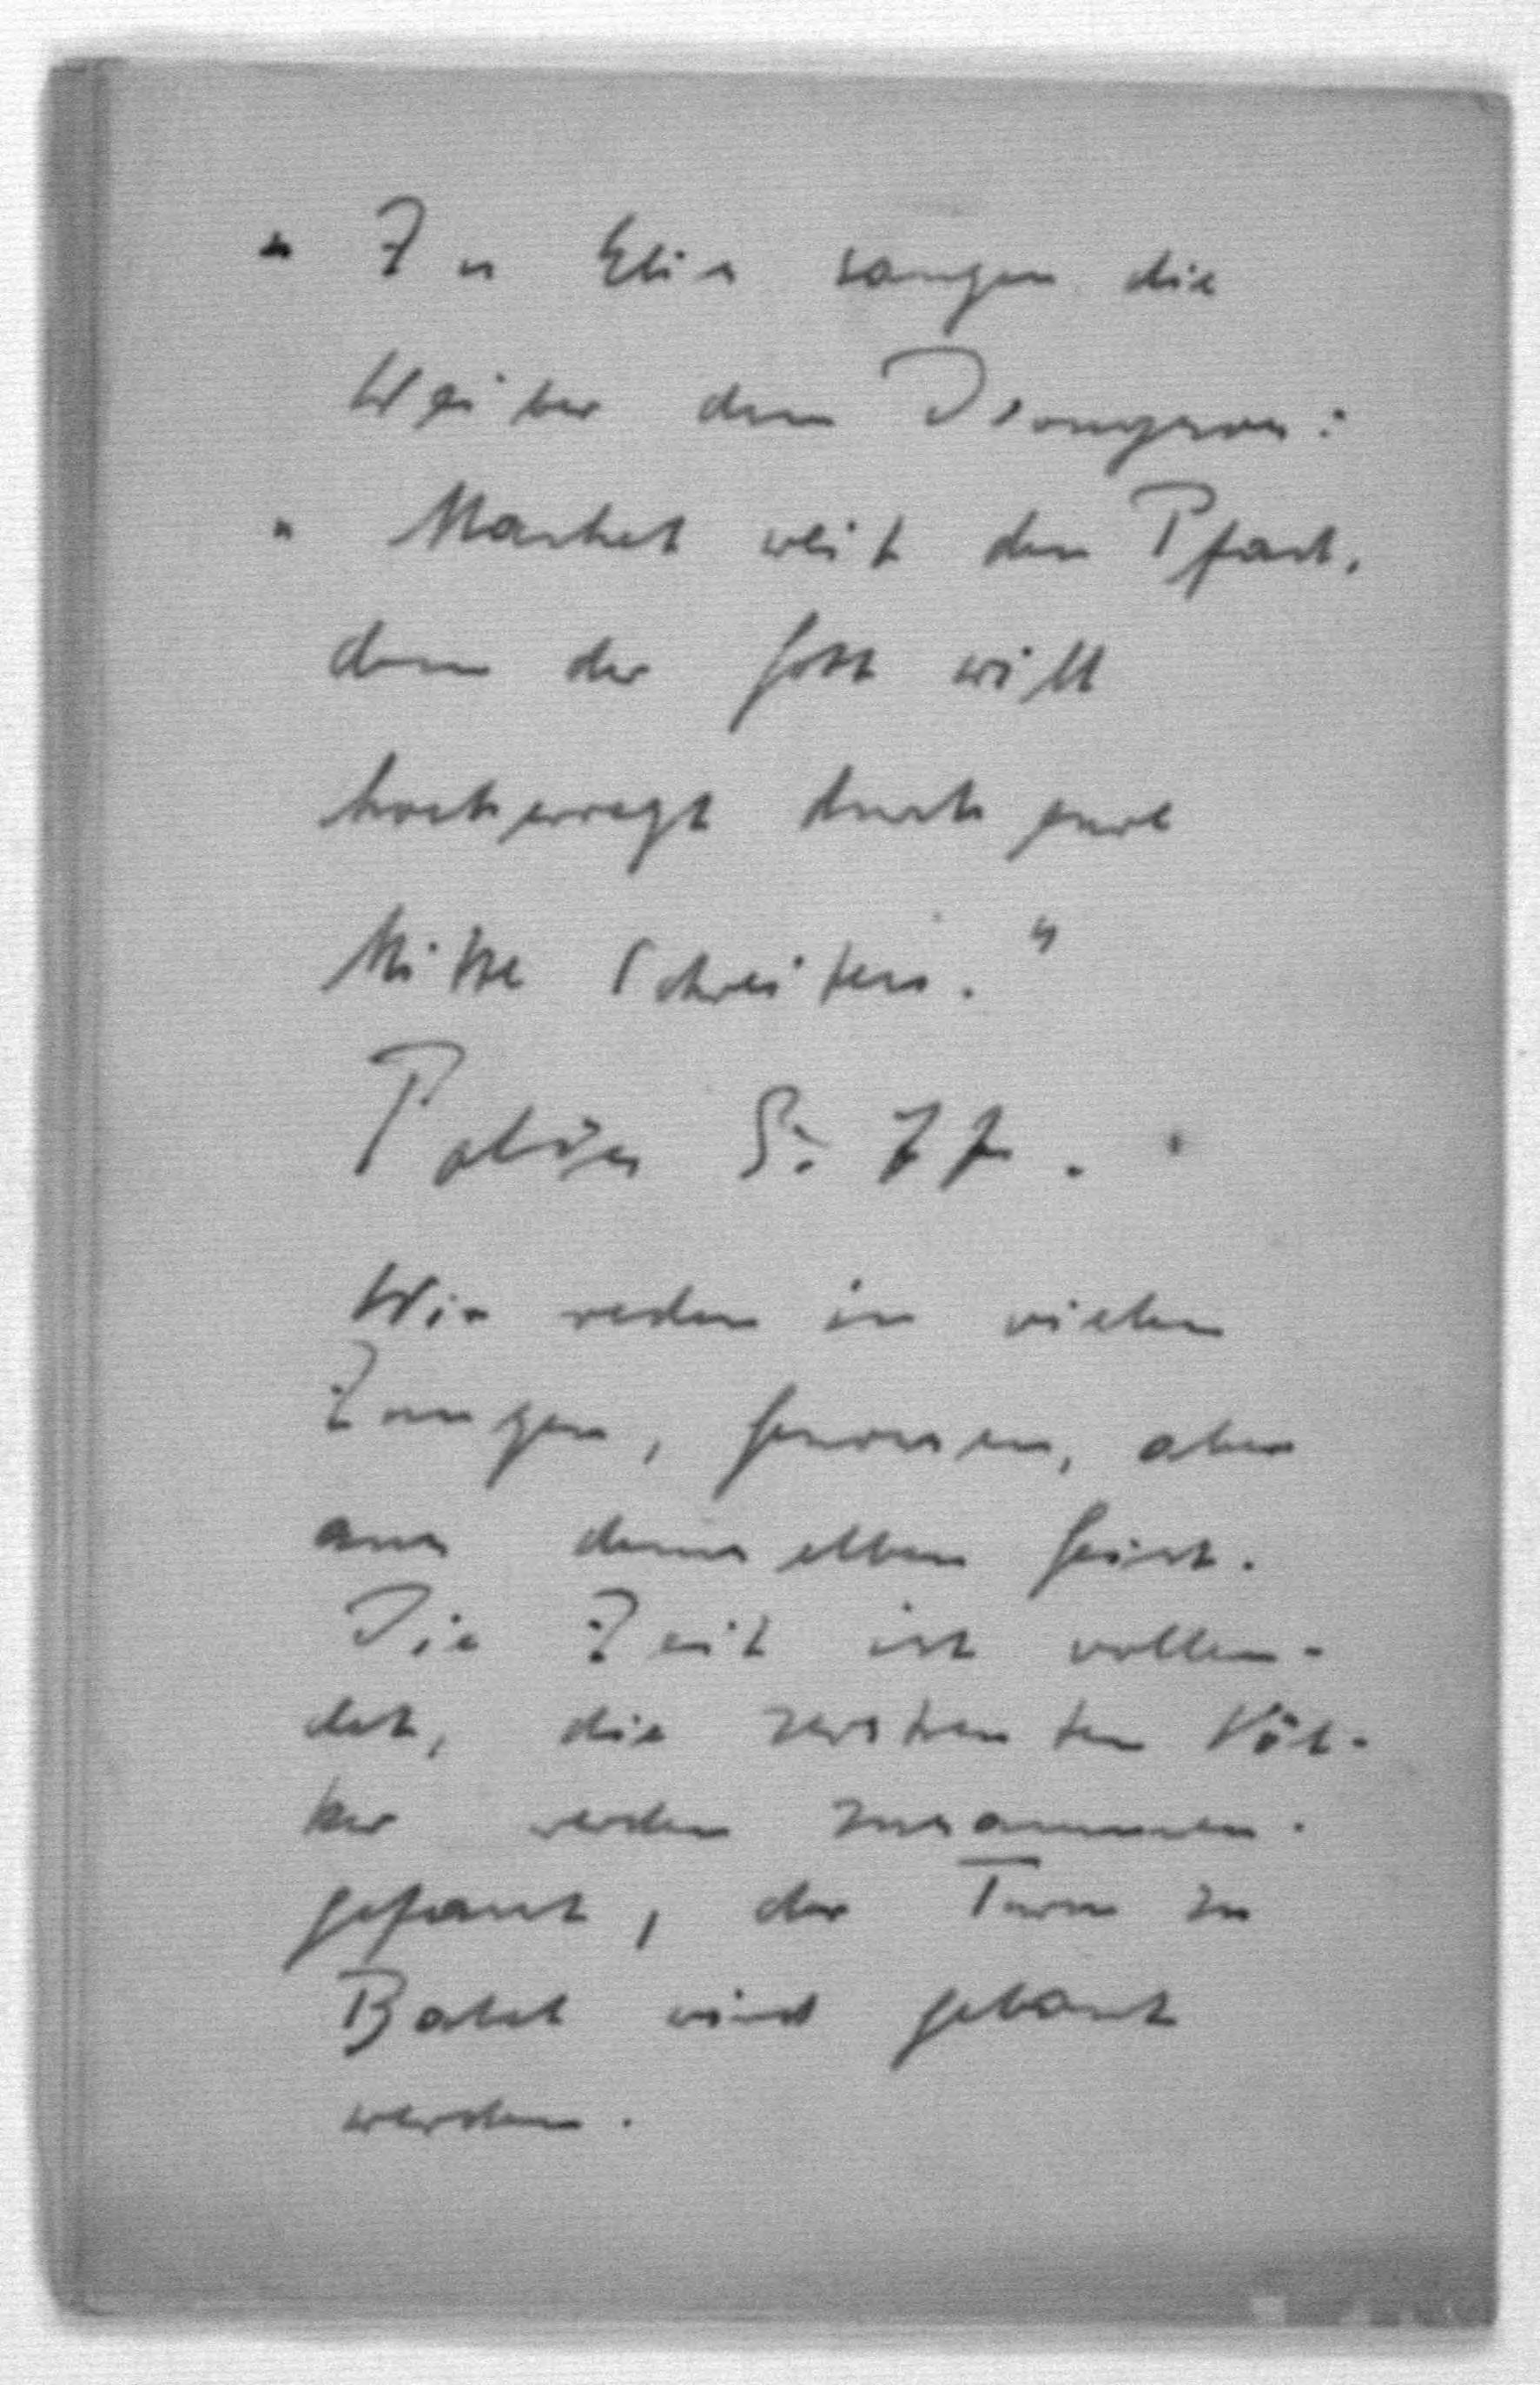 " Zu Elis sangen die
Weiber dem Dionysos:
" Machet weit den Pfad,
denn der Gott will
hocherregt durch eure
Mitte schreiten."
S. 77.
Wir reden in vielen
Zungen, Genossen, aber
aus demselben Geist.
Die Zeit ist vollen-
det, die zerstreuten Völ-
ker werden zusammen-
gefasst, der Turm zu
Babel wird gebaut
werden.